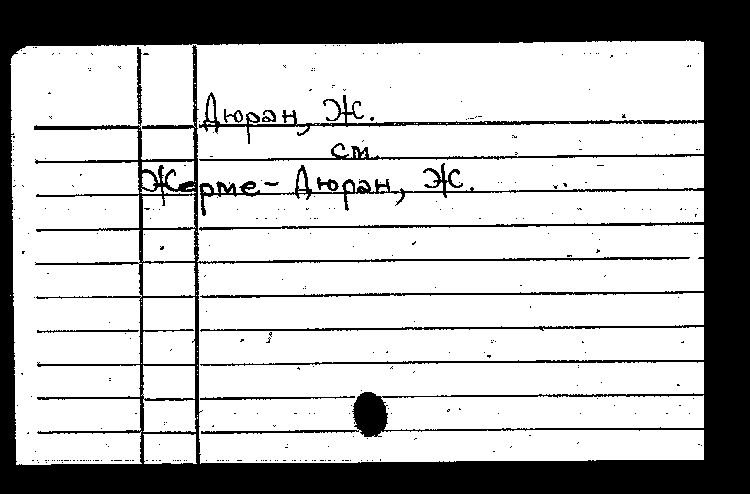 Дюран, Ж.
см.
Жерме-Дюран, Ж.